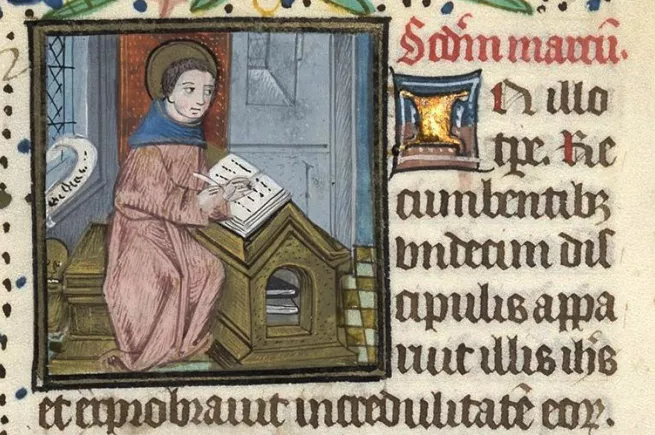 Scdm marcū.
IN illo
tpe. Re
cumbentibꝫ
vndecim dis
cipulis appa
ruit illis ihs
et exprobrauit incredulitatē eoꝝ.